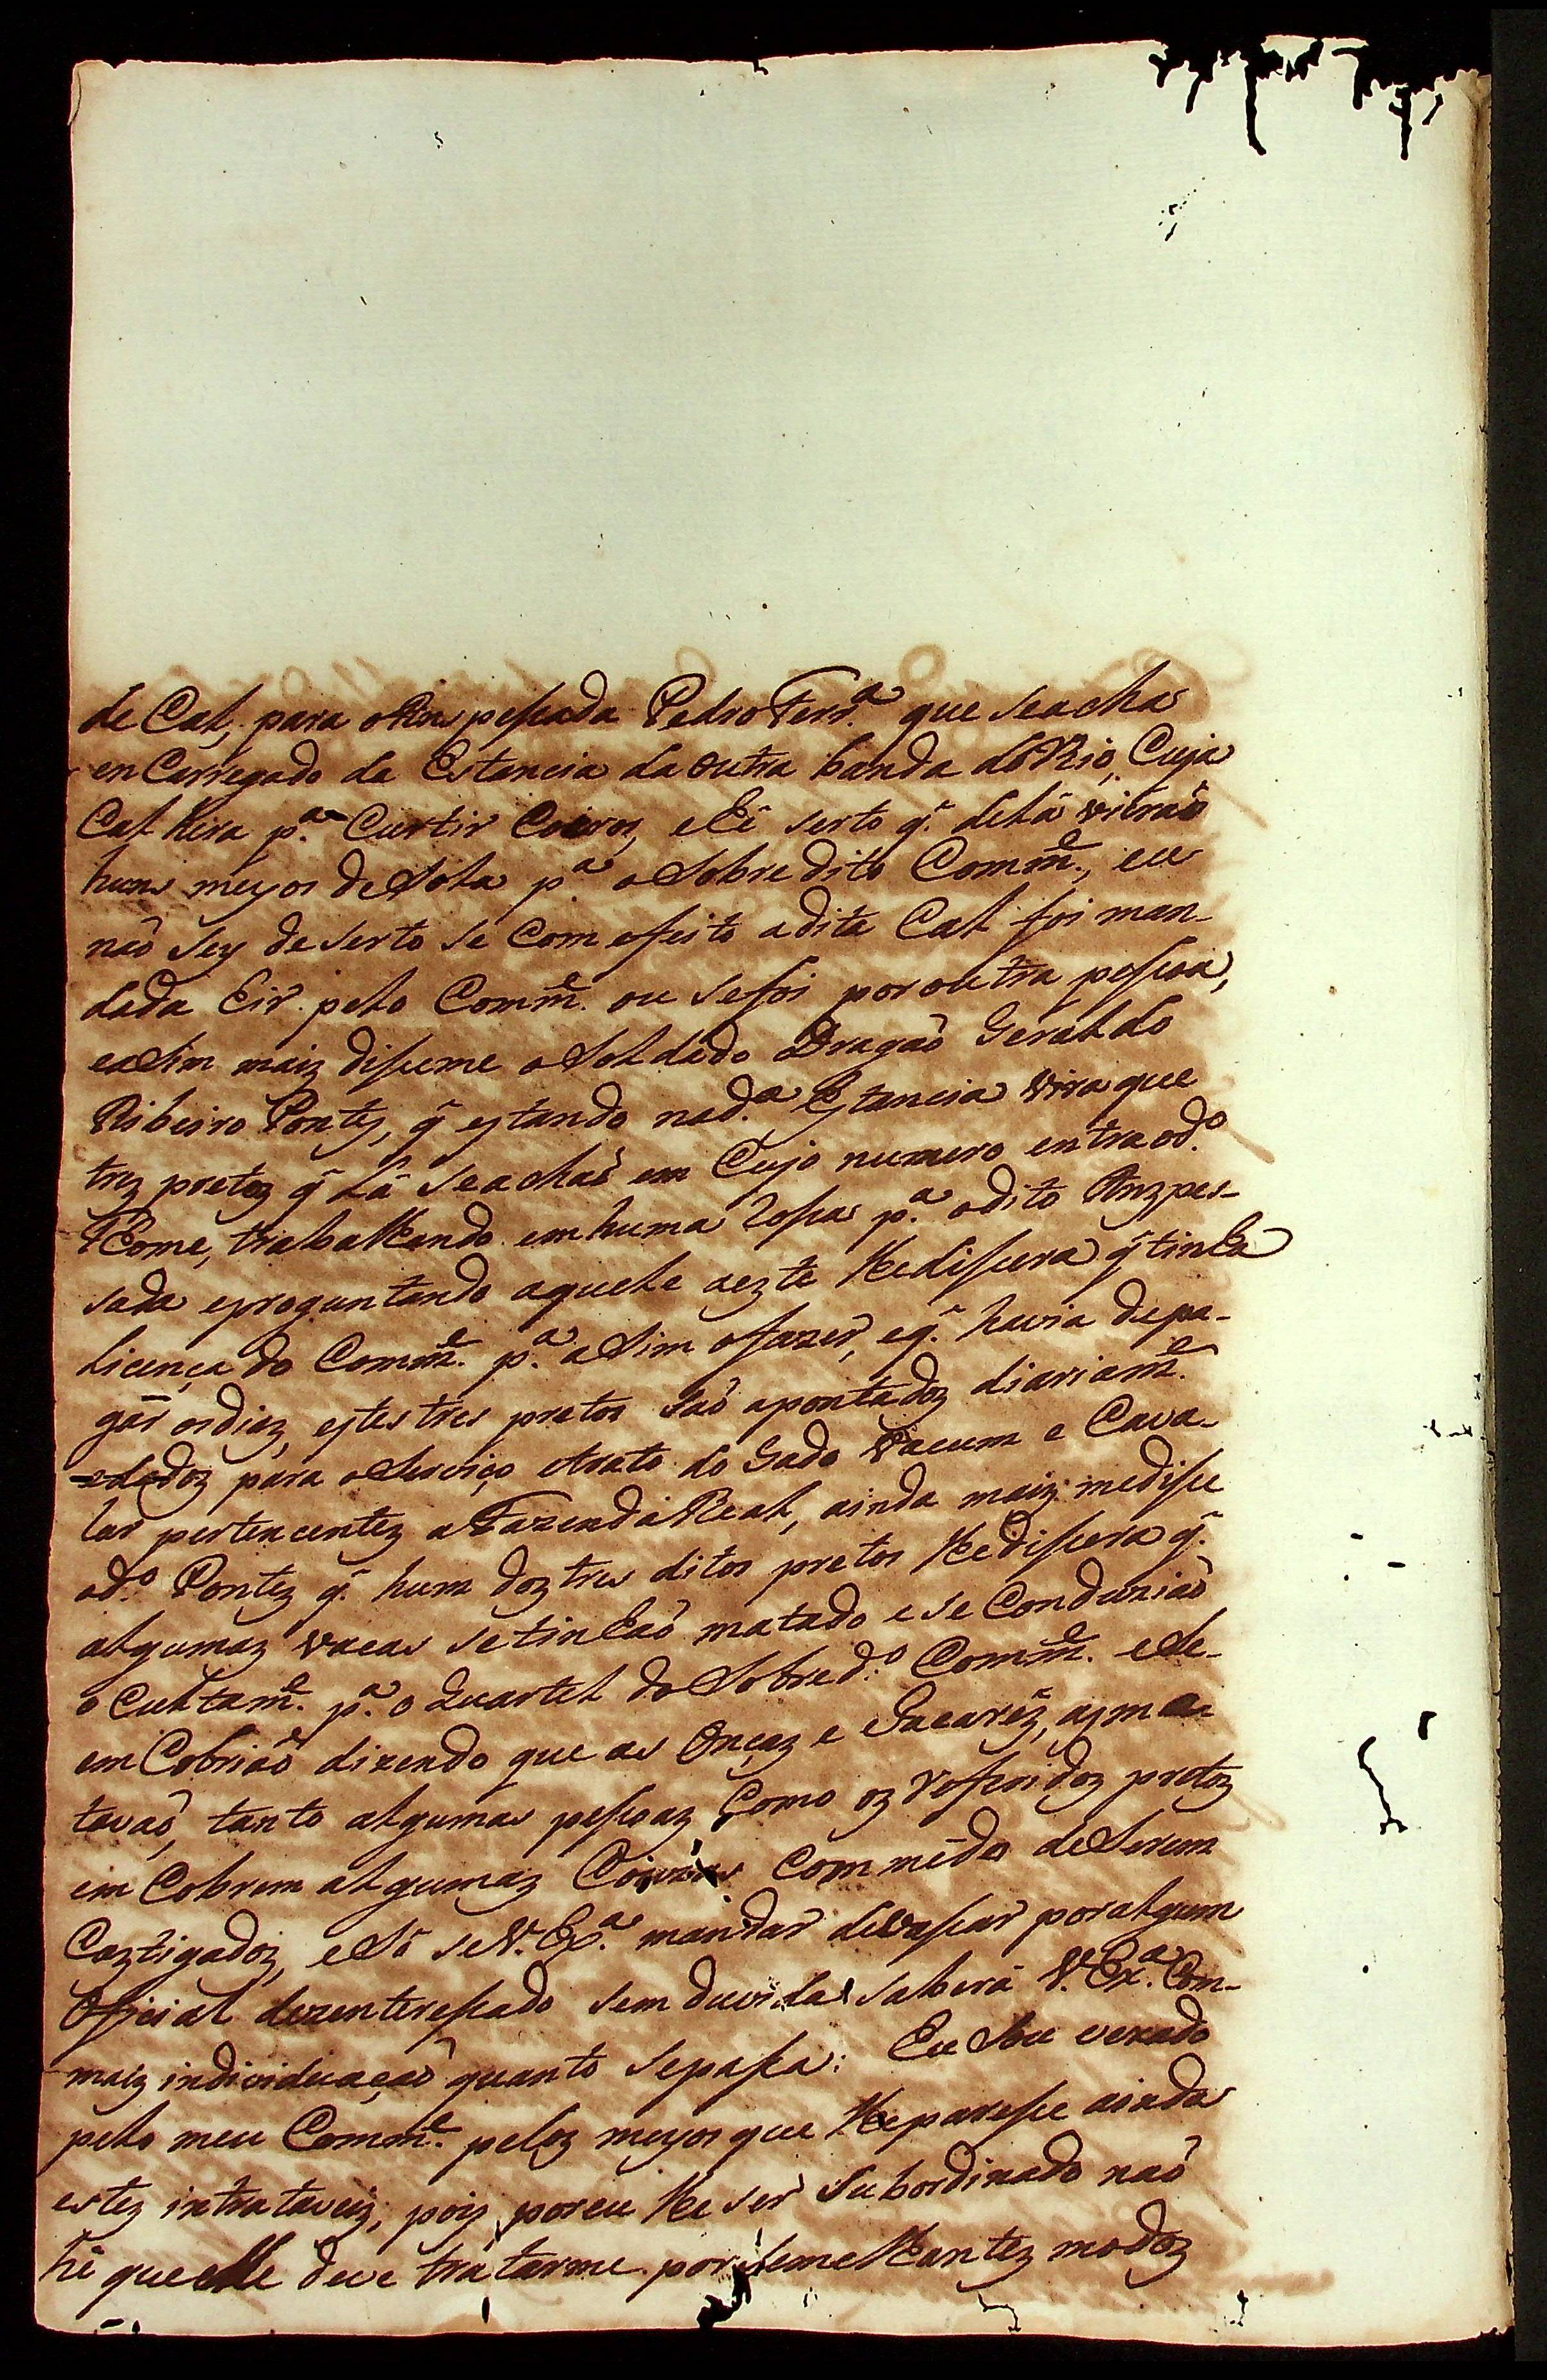 de Cal, para o Anspessada Pedro Ferr.ª que seacha
en Carregado da Estancia da outra banda do Rio, Cuja
Cal hira p.ª Curtir Coiros, e hé serto q̃. delá vieraõ
huns meyos de Sola p.ª o Sobre dito Comm.e, eu
naõ sey de serto se Com efeito adita Cal foi man-
dada hir pelo Comm.e ou sefoi por outra pessoa,
easim maiz dis seme o Soldado Dragaõ Geraldo
Ribeiro Pontez, q̃ estando nad.ª Estancia vira que
trez pretoz q̃ Lá seachaõ em Cujo numero entra od.º
Thome, trabalhando em huma Rossa p.ª o dito Anzpes-
sada eproguntando aquele aezte lhedissera q̃ tinha
Licença do Comm.e p.ª asim ofazer, eq̃. havia depa-
gar osdiaz, estes tres pretos saõ apontadoz diariam.e
dos para o Serviço etrato do Gado Vacum e Cava-
lar pertencentez a Fazenda Real, ainda maiz medisse
od.º Pontez q̃. hum doz tres ditos pretos lhedissera q̃.
algumaz vacas setinhaõ matado e se Conduziaõ
o Cultam.e p.ª o Quartel do Sobred.º Comm.e ese
em Cobriaõ dizendo que as Onçaz e Jacarés, asma
tavaõ, tanto algumas pessoaz Como oz referidoz pretoz
em Cobrem algumaz Com médo de Serem
Caztigadoz, e Só se V. Ex.ª mandar devassar por algum
Oficial dezenteressado sem duvida saberá V. Ex.ª Com-
maiz individuaçaõ quanto sepassa: Eu Sou vexado
pelo meu Comm.e peloz meyos que lhe paresse ainda
estez intrataveiz, poiz por eu lhe ser Subordinado naõ
hé que elle deve tratarme por Semelhantez modoz